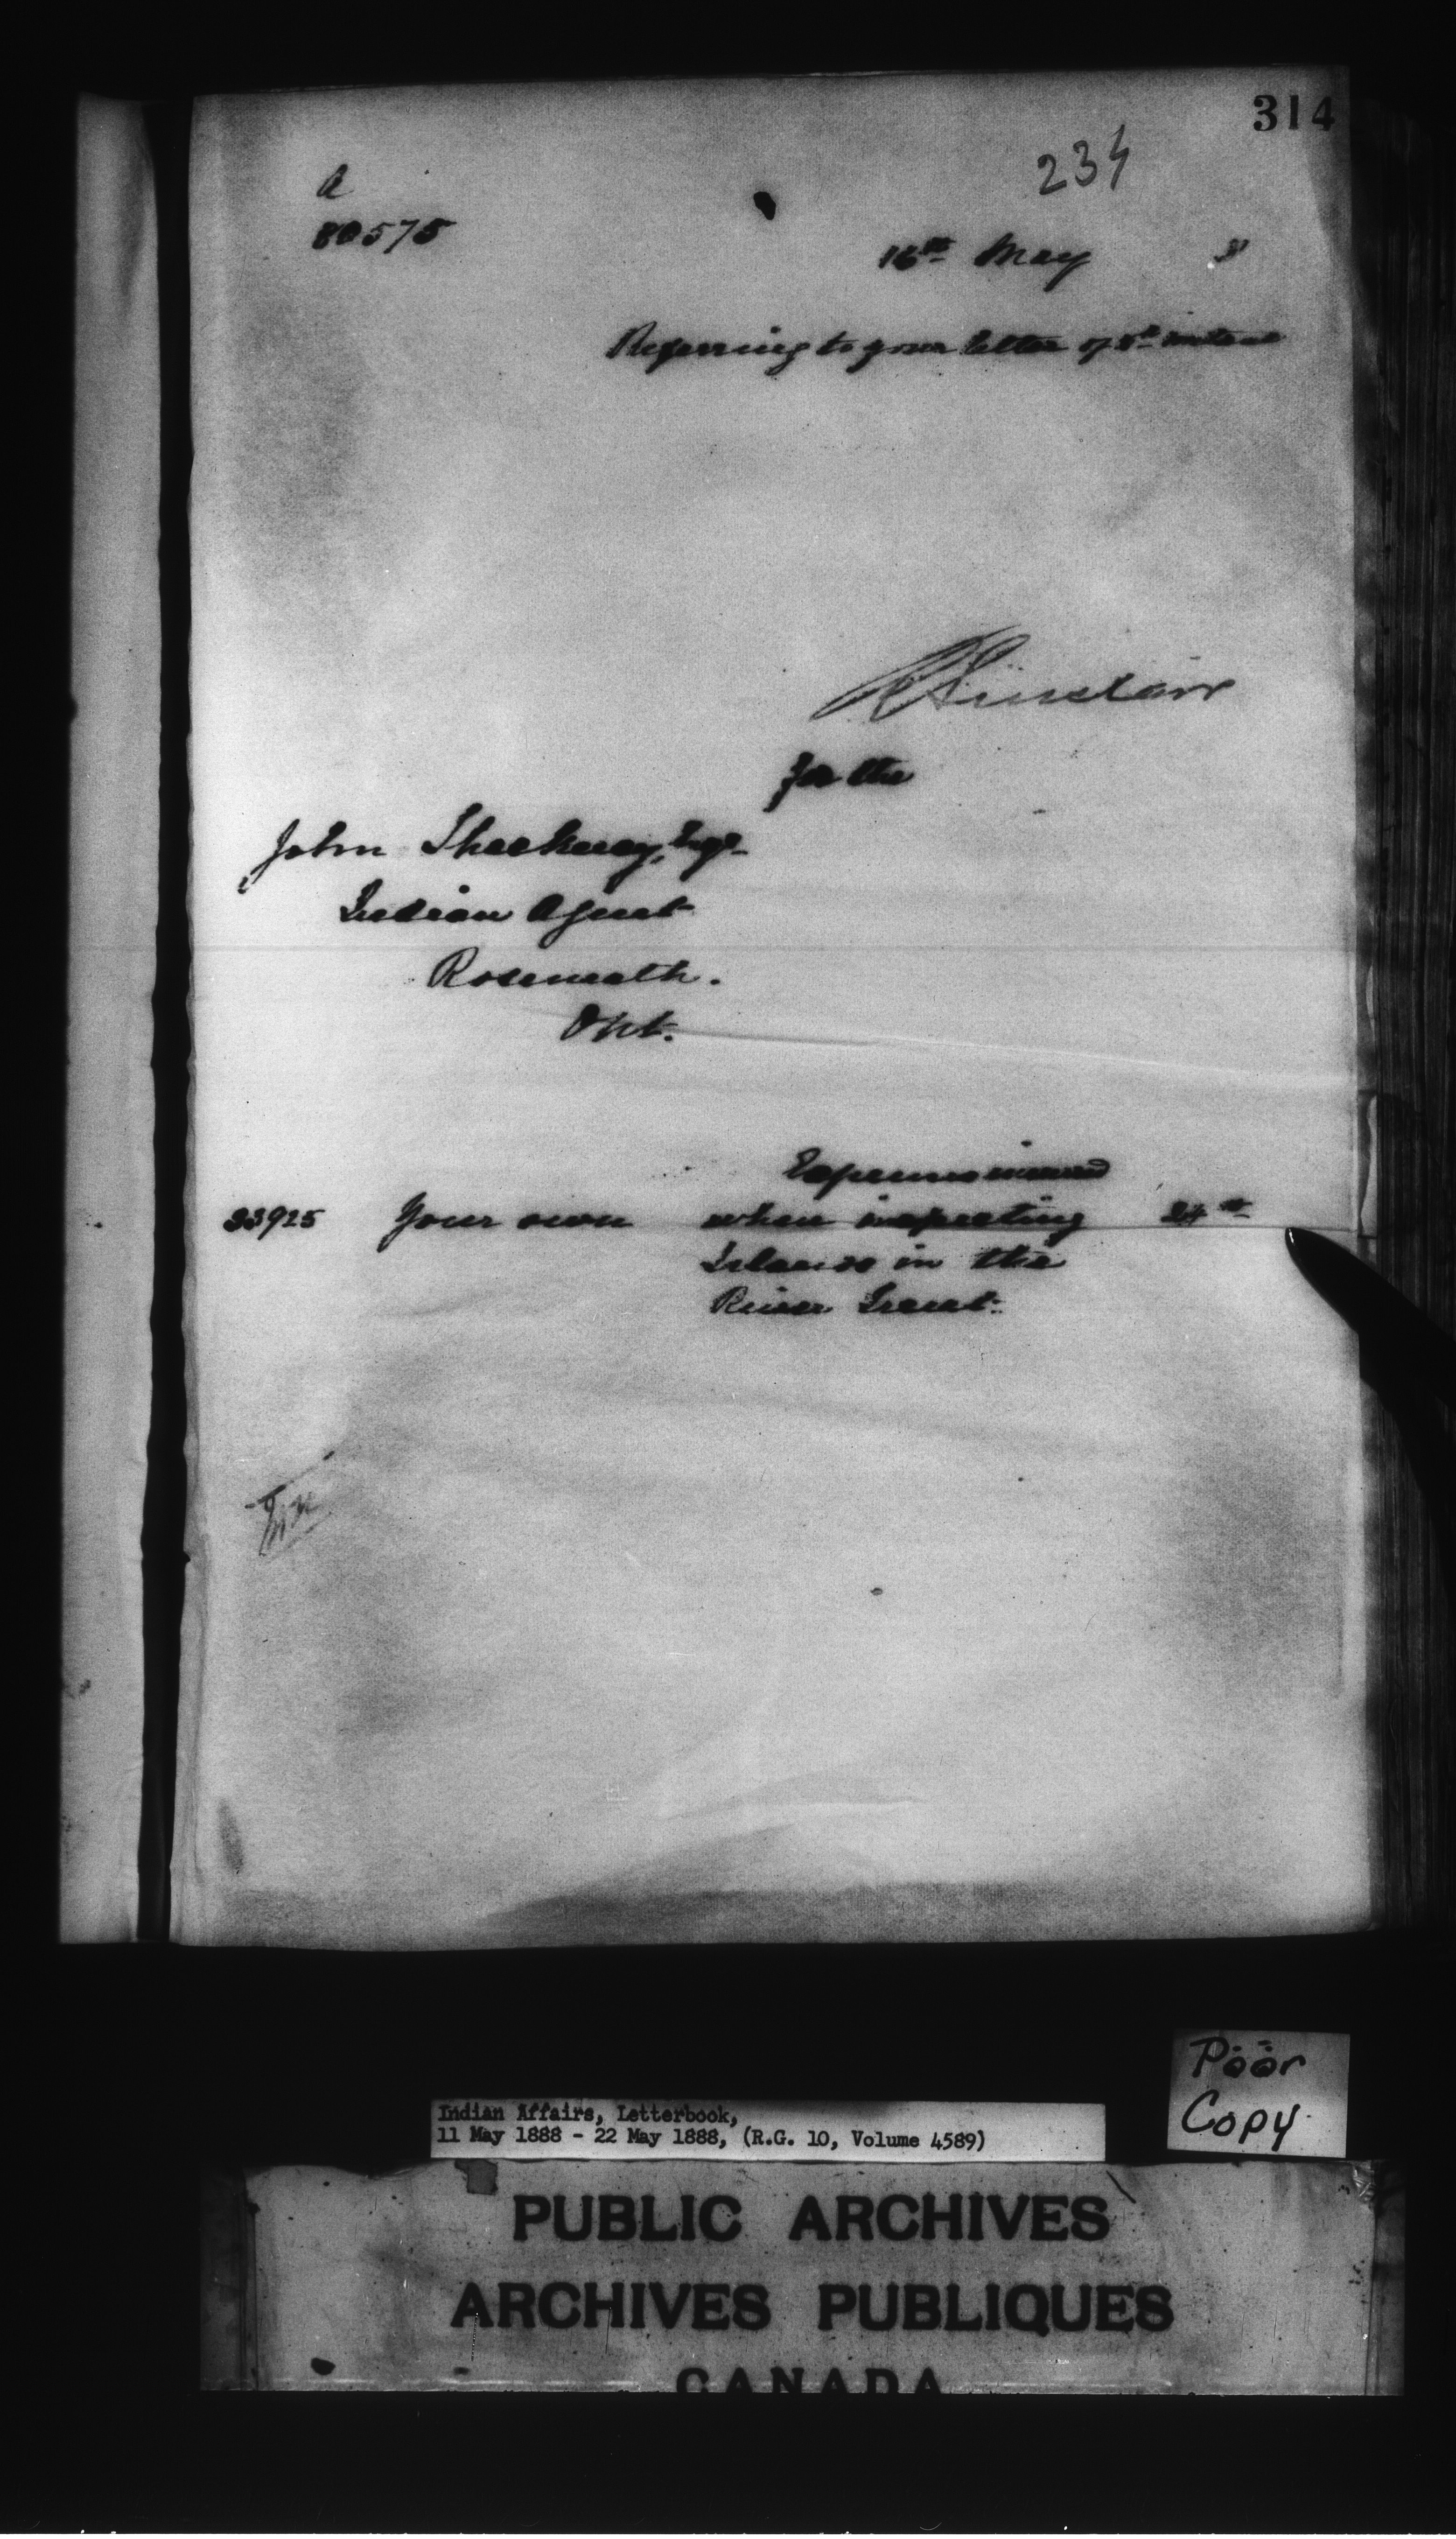 314
234
A
80575
16th May 8
Referring to your letter of 5th instant
Sinclair
for the
John Thackeray, Esqr
Indian Agent
Roseneath.
Ont.
Expenses incurred
33925 Your own when inspecting 24 00
Islands in the
River Trent.
Poor
Copy
Indian Affairs, Letterbook,
11 May 1888 - 22 May 1888, (R.G. 10, Volume 4589)
PUBLIC ARCHIVES
ARCHIVES PUBLIQUES
CANADA